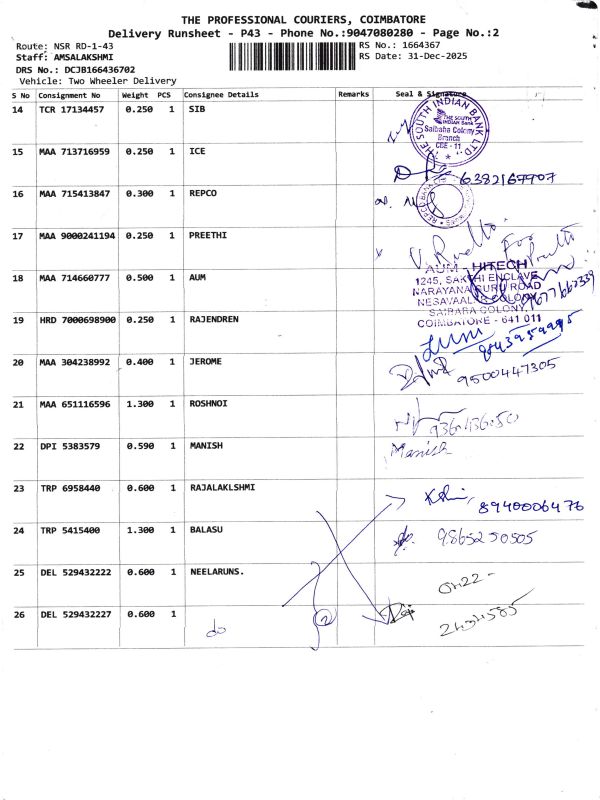 THE PROFESSIONAL COURIERS, COIMBATORE
Delivery Runsheet - P43 - Phone No.:9047080280 - Page No.:2
Route: NSR RD-1-43
RS No.: 1664367
Staff: AMSALAKSHMI
RS Date: 31-Dec-2025
DRS No.: DCJB166436702
Vehicle: Two Wheeler Delivery
S No Consignment No Weight PCS Consignee Details Remarks Seal & Signature
14 TCR 17134457 0.250 1 SIB
THE SOUTH INDIAN BANK LTD.
THE SOUTH INDIAN Bank
Saibaba Colony
Branch
CBE - 11
15 MAA 713716959 0.250 1 ICE
6382167707
16 MAA 715413847 0.300 1 REPCO
REPCO BANK
17 MAA 9000241194 0.250 1 PREETHI
For
18 MAA 714660777 0.500 1 AUM
AUM HITECH
1245, SAKTHI ENCLAVE
NARAYANA GURU ROAD
NESAVAALAR COLONY
SAIBABA COLONY,
COIMBATORE - 641 011
9677662339
19 HRD 7000698900 0.250 1 RAJENDREN
9843959995
20 MAA 304238992 0.400 1 JEROME
9500447305
21 MAA 651116596 1.300 1 ROSHNOI
22 DPI 5383579 0.590 1 MANISH
Manish
23 TRP 6958440 0.600 1 RAJALAKLSHMI
8940006476
24 TRP 5415400 1.300 1 BALASU
9865250505
25 DEL 529432222 0.600 1 NEELARUNS.
0422-
26 DEL 529432227 0.600 1
do
2
2434585